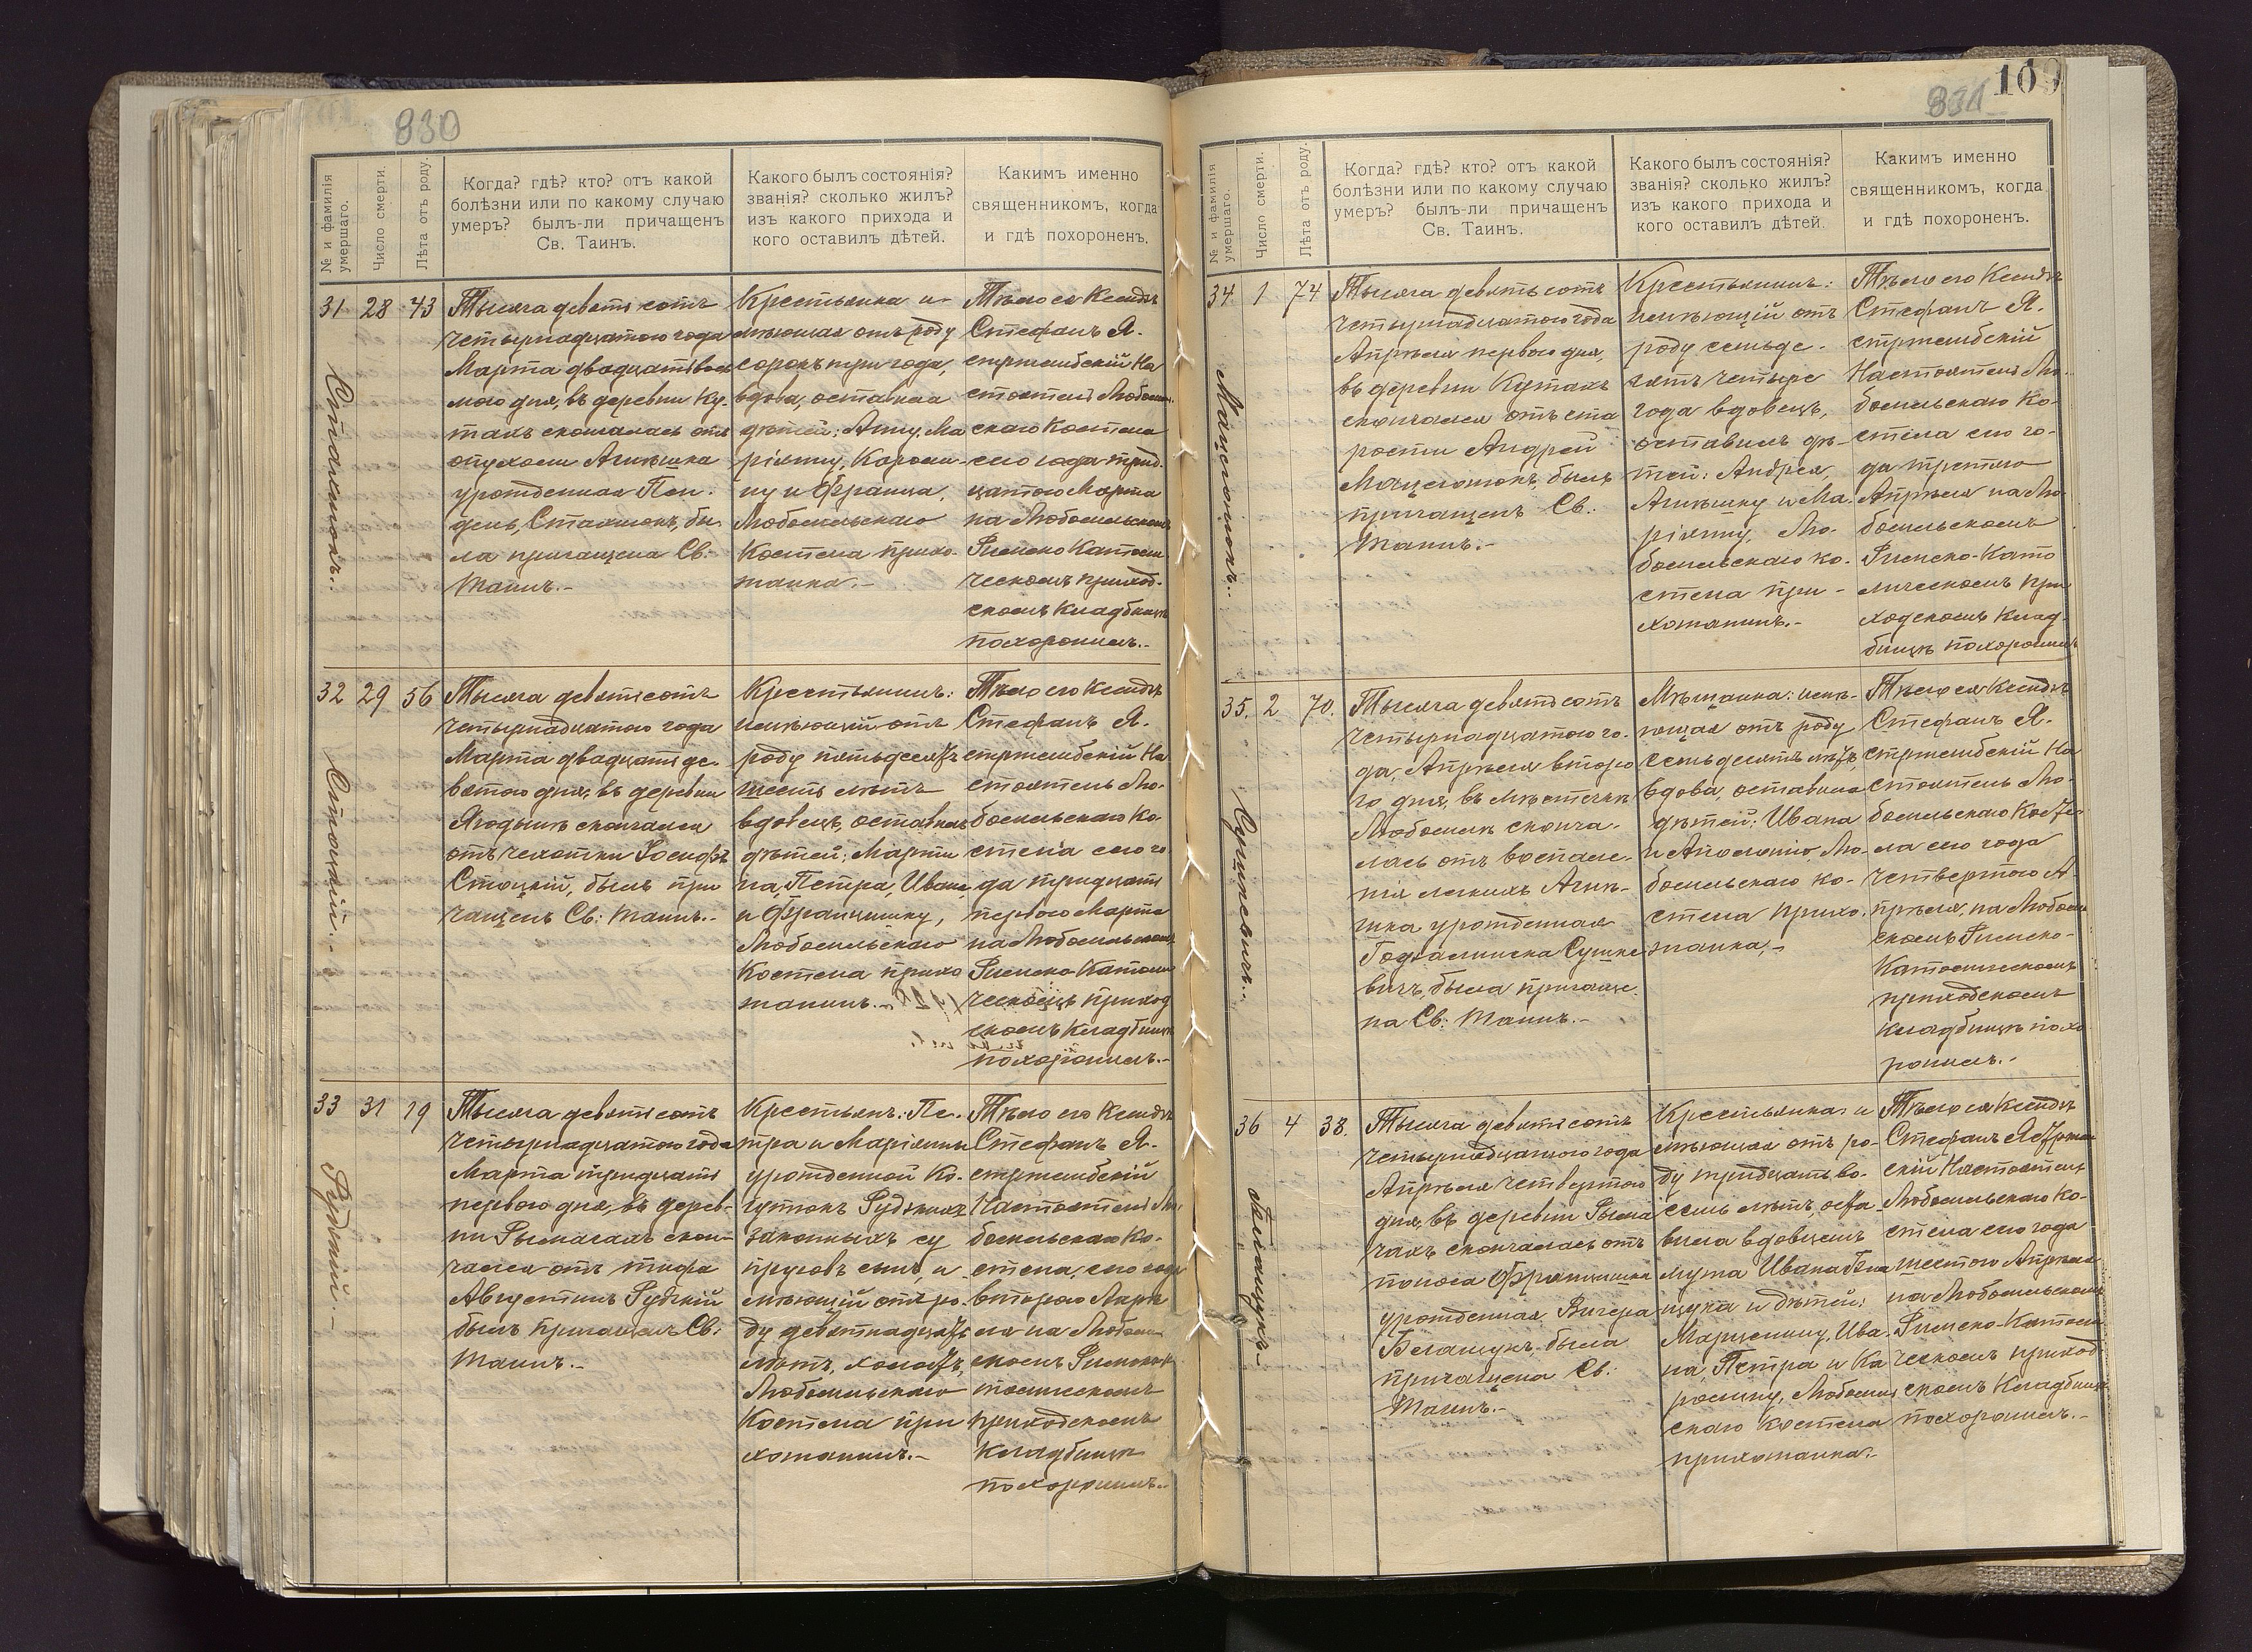 830
№ и фамилія умершаго.
Число смерти.
Лѣта отъ роду.
Когда? гдѣ? кто? отъ какой
болѣзни или по какому случаю
умеръ? былъ-ли причащенъ
Св. Таинъ.
Какого былъ состоянія?
званія? сколько жилъ?
изъ какого прихода и
кого оставилъ дѣтей.
Какимъ именно
священникомъ, когда
и гдѣ похороненъ.
31 28 43
Тысяча девятьсотъ
четырнадцатого года
Марта двадцать вось
мого дня, въ деревни Ку-
тахъ скончалась отъ
опухоли Агнѣшка
урожденная
была причащена Св.
Таинъ.-
Крестьянка и-
мѣющая отъ роду
сорокъ три года,
вдова, оставила
дѣтей: Анну, Ма
ріянну, Кароли-
ну и Франца,
Любомльскаго
Костела прихо-
жанка.-
Тѣло ея Ксендзъ
Стефанъ Я-
стржембскій На
стоятель Любомль-
скаго Костела
сего года трид-
цатого Марта
на Любомльскомъ
Римско Католи
ческомъ приход-
скомъ Кладбищѣ
похоронилъ.-
32 29 56
Стоцкій.-
Тысяча девятьсотъ
четырнадцатого года
Марта двадцать де-
вятого дня, въ деревни
Ягодынѣ скончался
отъ чахотки Іосифъ
Стоцкій, былъ при
чащенъ Св: Таинъ.-
Крестьянинъ:
имѣющій отъ
роду пятьдесятъ
шесть лѣтъ
вдовецъ, оставилъ
дѣтей: Марти
на, Петра, Ивана,
и Францишку,
Любомльскаго
Костела прихо
жанинъ.-
Тѣло его Ксендзъ
Стефанъ Я-
стржембскій На
стоятель Лю-
бомльскаго Ко-
стела сего го
да тридцать
первого Марта
на Любомльскомъ
Римско-Католи
ческомъ приход
скомъ Кладбищѣ
похоронилъ.-
33 31 19
Рудзкій.-
Тысяча девятьсотъ
четырнадцатого года
Марта тридцать
первого дня, въ дерев-
ни Рымачахъ скон-
чался отъ тифа
Августинъ Рудзкій
былъ причащенъ Св:
Таинъ.-
Крестьянъ: Пе-
тра и Маріянны
урожденной Ко-
гутюкъ Рудзкихъ
законныхъ су
пруговъ сынъ, и
мѣющій отъ ро-
ду девятнадцать
лѣтъ, холостъ,
Любомльскаго
Костела при
хожанинъ.-
Тѣло его Ксендзъ
Стефанъ Я-
стржембскій
Настоятель Лю-
бомльскаго Ко-
стела, сего года
второго Апрѣ
ля на Любомль-
скомъ Римско Ка-
толическомъ
приходскомъ
Кладбищѣ
похоронилъ.-
831
109
№ и фамилія умершаго.
Число смерти.
Лѣта отъ роду.
Когда? гдѣ? кто? отъ какой
болѣзни или по какому случаю
умеръ? былъ-ли причащенъ
Св. Таинъ.
Какого былъ состоянія?
званія? сколько жилъ?
изъ какого прихода и
кого оставилъ дѣтей.
Какимъ именно
священникомъ, когда
и гдѣ похороненъ.
34 1 74
Мацегонюкъ.-
Тысяча девятьсотъ
четырнадцатого года
Апрѣля первого дня,
въ деревни Кутахъ
скончался отъ ста
рости Андрей
Мацегонюкъ, былъ
причащенъ Св.
Таинъ.-
Крестьянинъ:
имѣющій отъ
роду семьде-
сятъ четыре
года вдовецъ,
оставилъ дѣ-
тей: Андрея,
Агнѣшку и Ма-
ріянну, Лю-
бомльскаго ко-
стела при-
хожанинъ.-
Тѣло его Ксендзъ
Стефанъ Я-
стржембскій
Настоятель Лю-
бомльскаго Ко-
стела сего го-
да третього
Апрѣля на Лю-
бомльскомъ
Римско-Като
лическомъ при
ходскомъ Клад-
бищѣ похоронилъ
35. 2 70.
Сушкевичъ.-
Тысяча девятьсотъ
четырнадцатого го-
да, Апрѣля второ
го дня, въ мѣстечкѣ
Любомлѣ сконча-
лась отъ воспале-
нія легкихъ Агнѣ-
шка урожденная
Сушке
вичъ, была причаще-
на Св: Таинъ.-
Мѣщанка: имѣ-
ющая отъ роду
семьдесятъ лѣтъ,
вдова, оставила
дѣтей: Ивана
и Аполонію, Лю-
бомльскаго ко-
стела прихо-
жанка,-
Тѣло ея Ксендзъ
Стефанъ Я-
стржембскій На
стоятель Лю-
бомльскаго Косте-
ла сего года
четвертого А-
прѣля, на Любомль
скомъ Римско-
Католическомъ
приходскомъ
кладбищѣ похо
ронилъ.-
36 4 38.
Белащукъ-
Тысяча девятьсотъ
четырнадцатого года
Апрѣля четвертого
дня, въ деревни Рыма
чахъ скончалась отъ
поноса Францишка
урожденная Вичера
Белащукъ, была
причащена Св:
Таинъ.-
Крестьянка: и
мѣющая отъ ро-
ду тридцать во-
семь лѣтъ, оста-
вила вдовцемъ
мужа Ивана Бела
щука и дѣтей:
Марцелину, Ива-
на, Петра и Ка
ролину, Любомль
скаго костела
прихожанка.-
Тѣло ея Ксендзъ
Стефанъ Ястржемб
скій Настоятель
Любомльскаго Ко-
стела сего года
шестого Апрѣля
на Любомльскомъ
Римско-Католи
ческомъ приход
скомъ Кладбищѣ
похоронилъ.-